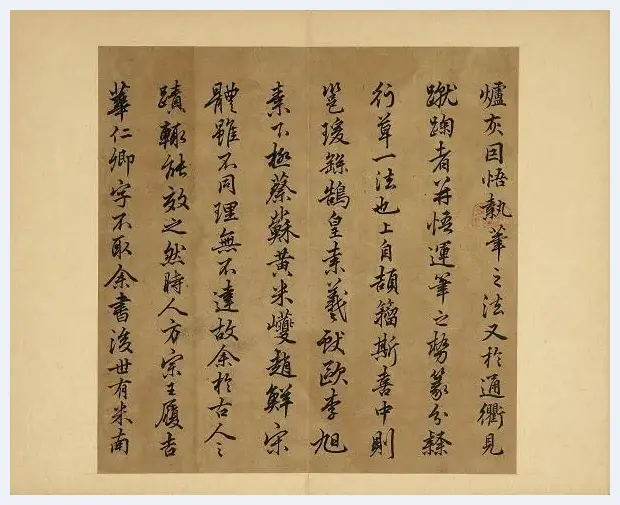 爐灰因悟執筆之法又於通衢見
蹴踘者并悟運筆之勢篆分隸
行草一法也上自頡籀斯喜中則
邕瑗繇鵠皇索羲獻歐李旭
素下極蔡蘇黃米夔趙鮮宋
體雖不同理無不達故余於古人之
蹟輒能效之然時人方宗王履吉
華仁卿字不取余書後世有米南